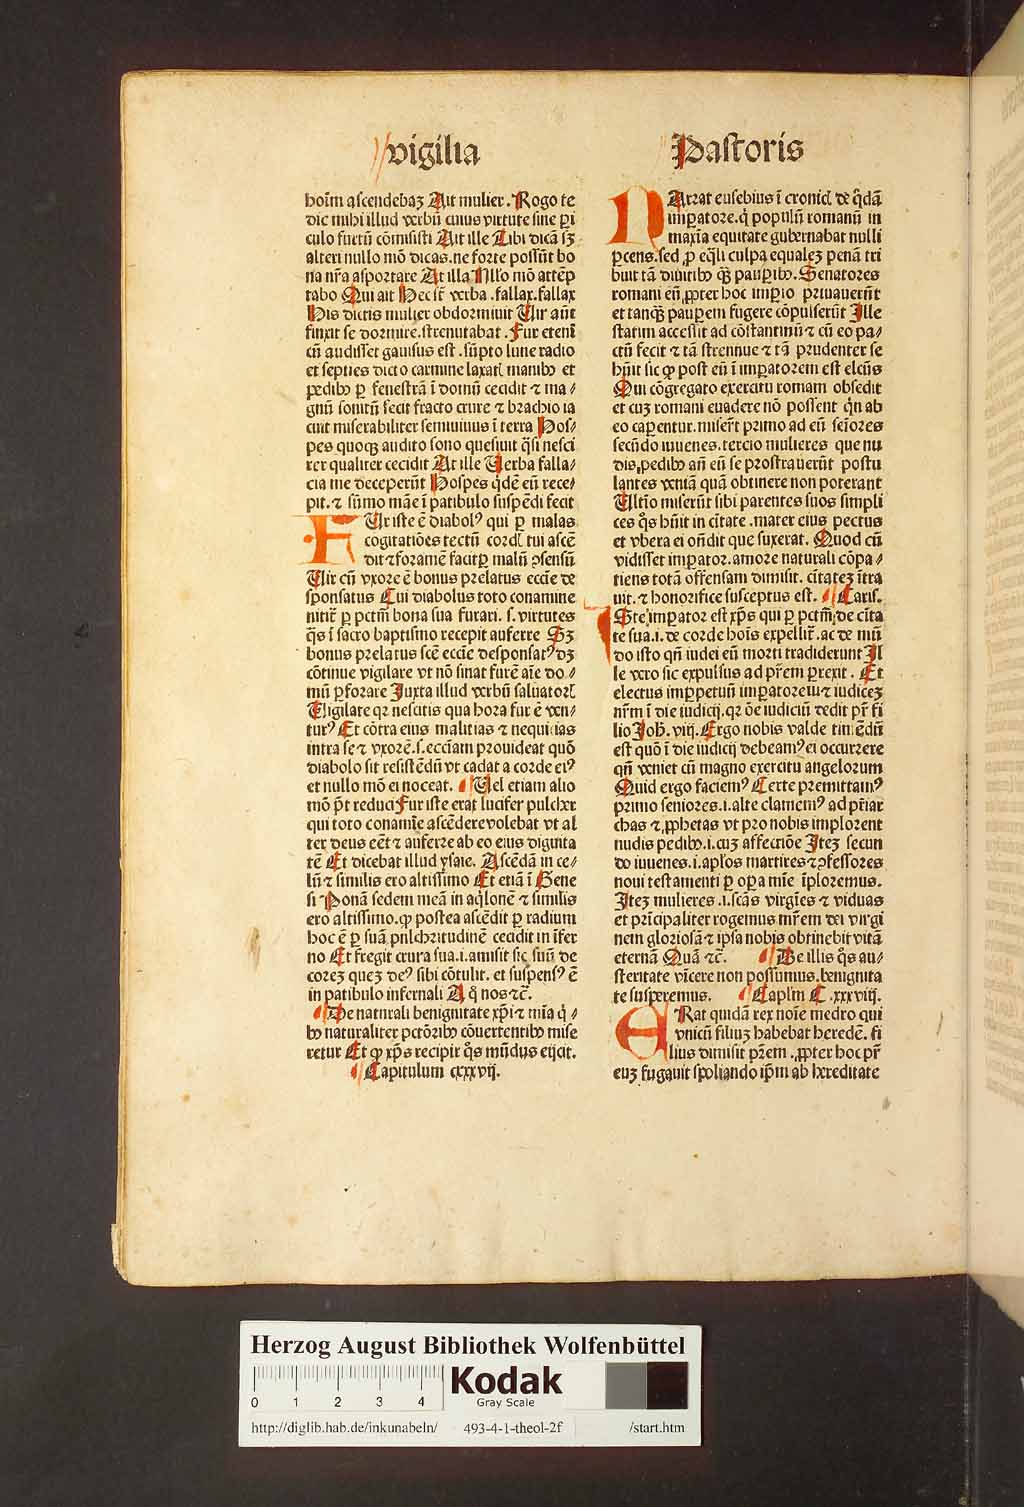 vigilia
Pastoris
hoīm ascendebaꝫ Ait mulier. Rogo te
dic mihi illud verbū cuius virtute sine ꝑi
culo furtū cōmisisti Ait ille Tibi dicā sꝫ
alteri nullo mō dicas. ne forte possūt bo
na nr̄a asportare At illa Nll'o mō attēp
tabo Qui ait Hec sūt verba. fallax. fallax
His dictis mulier obdormiuit Uir aūt
finxit se dormire. strenutabat. Fur etenī
cū audisset gauisus est. sūpto lune radio
et septies dicto carmine laxatꝭ manibꝰ et
pedibꝰ ꝑ fenestrā ī domū cecidit ⁊ ma⸗
gnū sonitū fecit fracto crure ⁊ brachio ia
cuit miserabiliter semiuiuus ī terra Hos⸗
pes quoqꝫ audito sono quesiuit q̄si nesci
rer qualiter cecidit At ille Uerba falla⸗
cia me deceperūt Hospes q̄dē eū rece⸗
pit. ⁊ sūmo māe ī patibulo suspēdi fecit
FUr iste ē diabolꝰ qui ꝑ malas
cogitatiōes tectū cordꝭ tui ascē
dit ⁊ foramē facit ꝑ malū ꝯsensū
Uir cū vxore ē bonus prelatus eccīe de
sponsatus Cui diabolus toto conamine
nitit̄ ꝑ pctm̄ bona sua furari. s. virtutes
q̄s ī sacro baptismo recepit auferre Sꝫ
bonus prelatus scē eccīe desponsatꝰ dꝫ
cōtinue vigilare vt nō sinat furē aīe do⸗
mū ꝑforare Juxta illud verbū saluatorꝭ
Uigilate qꝛ nescitis qua hora fur ē ven⸗
turꝰ Et cōtra eius malitias ⁊ nequicias
intra se ⁊ vxorē. s. eccīam prouideat quō
diabolo sit resistēdū vt cadat a corde eiꝰ
et nullo mō ei noceat. Uel etiam alio
mō p̄t reduci Fur iste erat lucifer pulcher
qui toto conamīe ascēdere volebat vt al
ter deus eēt ⁊ auferre ab eo eius dignita
tē Et dicebat illud ysaie. Ascēdā in ce⸗
lū ⁊ similis ero altissimo Et etiā ī Gene
si Ponā sedem meā in aq̄lonē ⁊ similis
ero altissimo. ꝙ postea ascēdit ꝑ radium
hoc ē ꝑ suā pulchritudinē cecidit in īfer
no Et fregit crura sua. i. amisit sic suū de
corem quez deꝰ sibi cōtulit. et suspensꝰ ē
in patibulo infernali A q̊ nos ⁊c̄.
De naturali benignitate xp̄i ⁊ mīa q̄⸗
bꝰ naturaliter pctōribꝰ cōuertentibꝰ mise
retur Et ꝙ xp̄s recipit q̊s mūdus eijcit.
Capitulum cxxxvij.
NArrat eusebius ī cronicꝭ de q̄dā
imꝑatore. q̄ populū romanū in
maxīa equitate gubernabat nulli
ꝑcens. sed ꝓ eq̄li culpa equaleꝫ penā tri
buit tā diuitibꝰ qꝫ pauꝑibꝰ. Senatores
romani eū ꝓpter hoc imꝑio priuauerūt
et tanqꝫ pauꝑem fugere cōpulserūt Ille
statim accessit ad cōstantinū ⁊ cū eo pa⸗
ctū fecit ⁊ tā strennue ⁊ tā prudenter se
hūit sic ꝙ post eū ī imꝑatorem est elcūs
Qui cōgregato exercitu romam obsedit
et cuꝫ romani euadere nō possent q̄n ab
eo caꝑentur. miserūt primo ad eū seīores
secūdo iuuenes. tercio mulieres que nu
dis pedibꝰ añ eū se prostrauerūt postu
lantes veniā quā obtinere non poterant
Ultīo miserūt sibi parentes suos simpli
ces q̊s hūit in ciuitate. mater eius pectus
et vbera ei oñdit que suxerat. Quod cū
vidisset imꝑator. amore naturali cōpa⸗
tiens totā offensam dimisit. ciuitateꝫ ītra
uit. ⁊ honorifice susceptus est. Caris.
ISte imꝑator est xp̄s qui ꝑ pctm̄ de ciuita
te sua. i. de corde hoīs expellit̄. ac de mū
do isto qñ iudei eū morti tradiderunt Il
le vero sic expulsus ad pr̄em ꝑrexit. Et
electus imꝑpetuū imꝑatorem ⁊ iudiceꝫ
nr̄m ī die iudicij. qꝛ oē iudiciū dedit pr̄ fi
lio Joħ. viij. Ergo nobis valde timēdū
est quō ī die iudicij debeamꝰ ei occurrere
qñ veniet cū magno exercitu angelorum
Quid ergo faciemꝰ Certe premittamꝰ
primo seniores. i. alte clamemꝰ ad pr̄iar
chas ⁊ ꝓphetas vt pro nobis implorent
nudis pedibꝰ. i. cuꝫ affectiōe Iteꝫ secun
do iuuenes. i. apl'os martires ⁊ ꝯfessores
noui testamenti ꝑ oꝑa mīe īploremus.
Iteꝫ mulieres. i. scās virgīes ⁊ viduas
et prīcipaliter rogemus mr̄em dei virgi
nem gloriosā ⁊ ipsa nobis obtinebit vitā
eternā Quā ⁊c̄. De illis q̊s au⸗
steritate vīcere non possumus. benignita
te suꝑemus. Capl'm C.xxxviij.
ERat quidā rex noīe medro qui
vnicū filiuꝫ habebat heredē. fi
lius dimisit pr̄em. ꝓpter hoc pr̄
euꝫ fugauit spoliando ip̄m ab hereditate
Herzog August Bibliothek Wolfenbüttel
0 1 2 3 4
Kodak
Gray Scale
http://diglib.hab.de/inkunabeln/ 493-4-1-theol-2f /start.htm